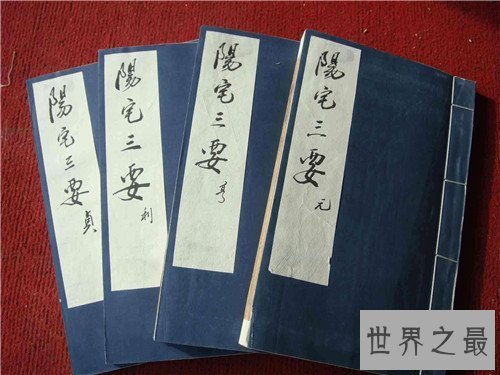 陽宅三要 貞
陽宅三要 利
陽宅三要 亨
陽宅三要 元
世界之最